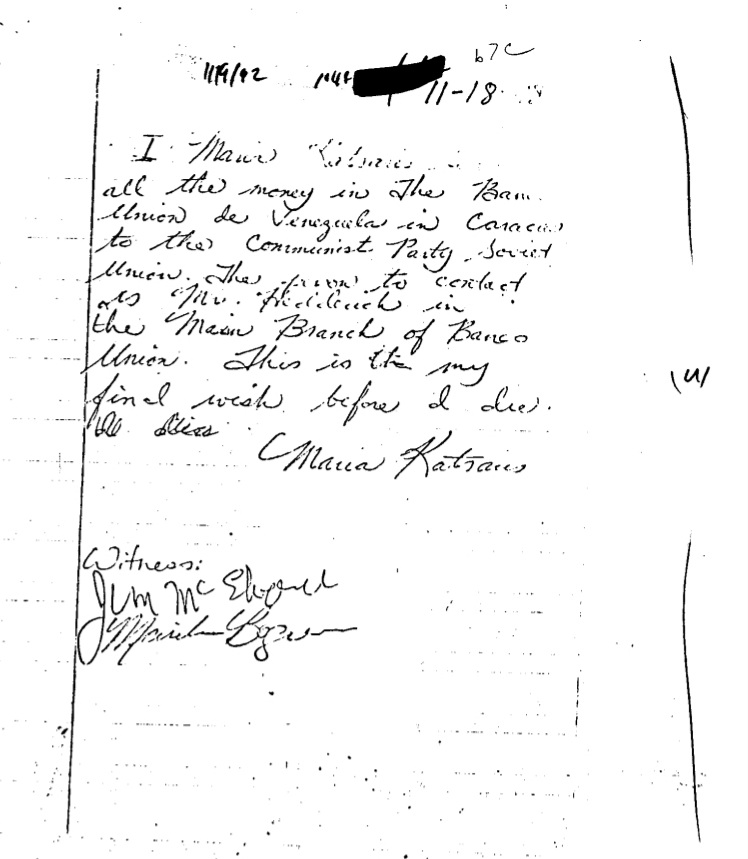 b7C
11/9/92
11-18
I Maria Katsaris
all the money in the Banc
Union de Venezuela in Caracas
to the Communist Party Soviet
Union. The person to contact
is Mr. in
the Main Branch of Banco
Union. This is the my
final wish before I die.
Maria Katsaris
Witness:
Jim McElvane
Marilee Bogue
(u)